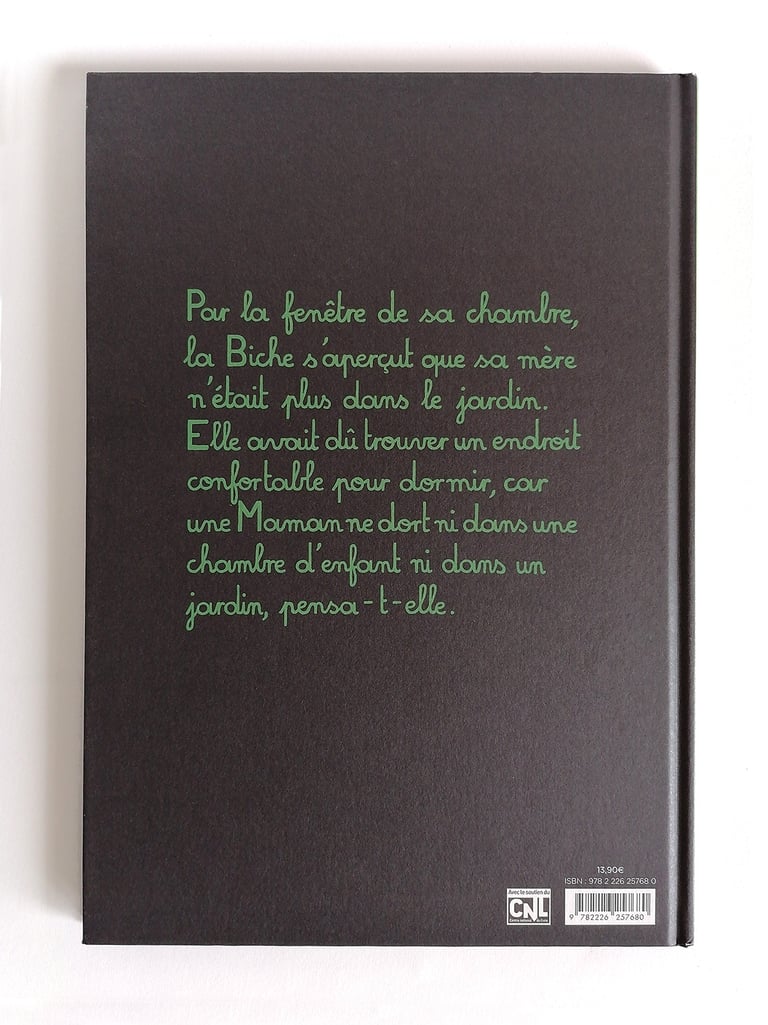 Par la fenêtre de sa chambre,
la Biche s'aperçut que sa mère
n'était plus dans le jardin.
Elle avait dû trouver un endroit
confortable pour dormir, car
une Maman ne dort ni dans une
chambre d'enfant ni dans un
jardin, pensa-t-elle.
13,90€
ISBN : 978 2 226 25768 0
Avec le soutien du
CNL
Centre national du livre
9 782226 257680